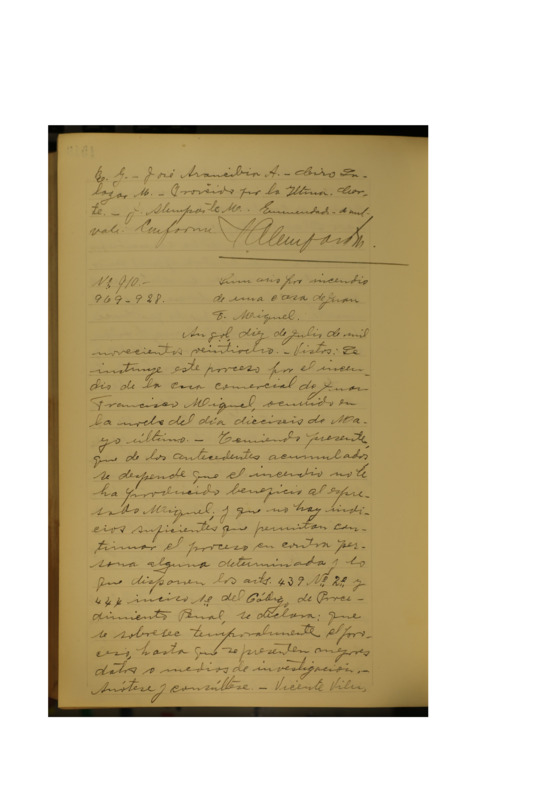 G. - José Arancibia A. - Ciro Sa-
lazar M. - Proveído por la Iltma. Cor-
te. - J. Alemposte M. Enmendado.
vale. Conforme
Alemparte M.
Nº 910.-
969-928.
Sumario por incendio
de una casa de Juan
F. Miguel.
Angol, diez de julio de mil
novecientos veintiocho. - Vistos: Se
instruye este proceso por el incen-
dio de la casa comercial de Juan
Francisco Miguel, ocurrido en
la noche del día dieciseis de Ma-
yo último. - Teniendo presente,
que de los antecedentes acumulados
se desprende que el incendio no le
ha producido beneficio al espre-
sado Miguel; y que no hay indi-
cios suficientes que permitan con-
tinuar el proceso en contra per-
sona alguna determinada y lo
que disponen los arts. 439 Nº 2º y
444 inciso 1º del Código de Proce-
dimiento Penal, se declara: que
se sobresee temporalmente el pro-
ceso, hasta que se presenten mejores
datos o medios de investigación. -
Anótese y consúltese. - Vicente